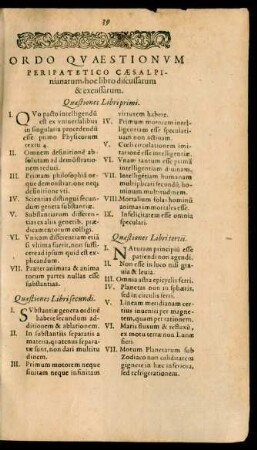 39
ORDO QVAESTIONVM
PERIPATETICO CÆSALPI-
niunarum, hoc libro discussarum
& excussarum.
Quæstiones Libri primi.
I. QVo pacto intelligendũ
est ex vniuersalibus
in singularia procedendũ
esse primo Physicorum
textu 4.
II. Omnem definitionẽ ab-
solutam ad demonstratio-
nem reduci.
III. Primam philosophiã ne-
que demonstratione neq;
definitione vti.
IV. Scientias distingui secun-
dum genera substantiæ.
V. Substantiarum differen-
tias ex aliis generib. præ-
dicamentorum colligi.
VI. Vnicam differentiam etiã
si vltima fuerit, non suffi-
cere ad ipsum quid est ex-
plicandum.
VII. Præter animata & anima
torum partes nullas esse
substantias.
Quæstiones Libri secundi.
I. SVbstantiæ genera ordinẽ
habere secundum ad-
ditionem & ablationem.
II. In substantiis separatis a
materia, quatenus separa-
tæ sunt, non dari multitu
dinem.
III. Primum motorem neque
finitam neque infinitam
virtutem habere.
IV. Primum mouentem intel-
ligentiam esse speculati-
uam non actiuam.
V. Cœli circulationem imi-
tationẽ esse intelligentiæ.
VI. Vnam tantum esse primã
intelligentiam diuinam.
VII. Intelligentiam humanam
multiplicari secundũ ho-
minum multitudinem.
VIII. Mortalium solã homini
animam esse immortalem.
IX. Infelicitatem esse omnia
speculari.
Quæstiones Libri tertii.
I. NAturam principiũ esse
patiendi non agendi.
II. Non esse in loco suo gra-
uia & leuia.
III. Omnia astra epicyclis ferri.
IV. Planetas non in sphæris,
sed in circulis ferri.
V. Lineam meridianam cer-
tius inueniri per magne-
tem, quam per rationem.
VI. Maris fluxum & refluxũ,
ex motu terræ non Lunæ
fieri.
VII. Motum Planetarum sub
Zodiaco non caliditatem
gignere in hæc inferiora,
sed refrigerationem.